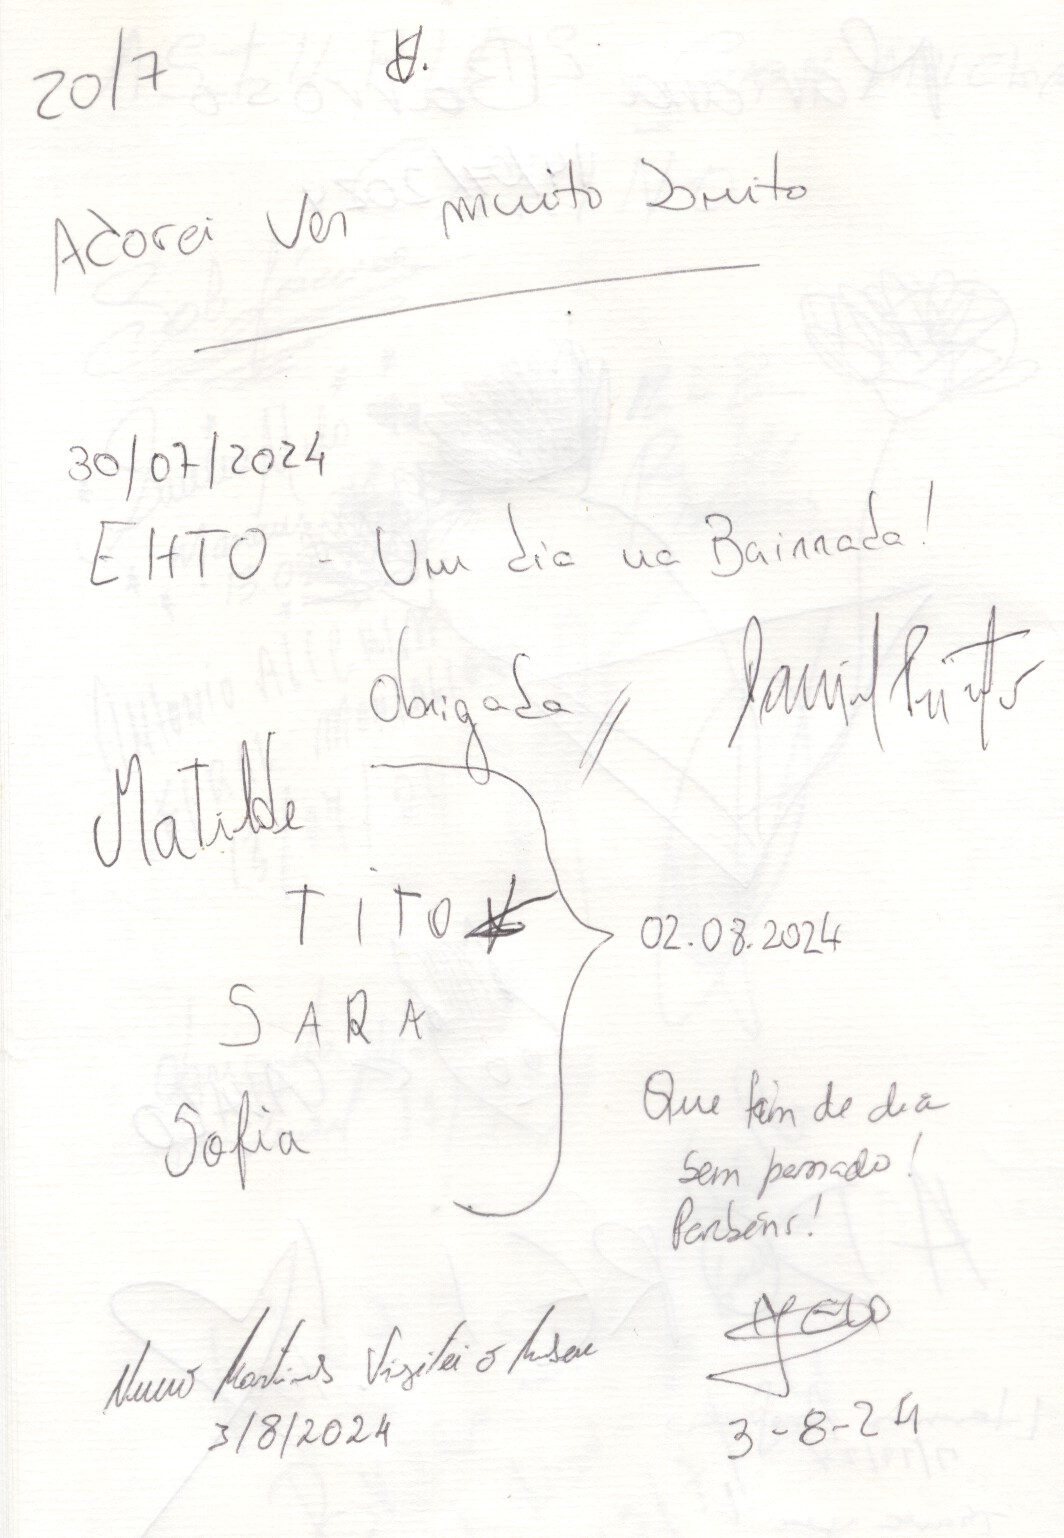 20/7
Adorei ver muito bonito
30/07/2024
EHTO - Um dia na Bairrada!
Obrigada //
Matilde
TITO
SARA
Sofia
02.08.2024
Que fim de dia
bem passado!
Parabéns!
Nuno Martins Visitei o Museu
3/8/2024
3-8-24